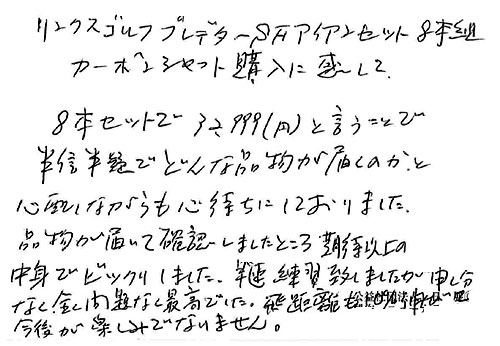 リンクスゴルフプレデターSFアイアンセット8本組
カーボンシャフト購入に感して
8本セットで32,999(円)と言うことで
半信半疑でどんな品物が届くのかと
心配しながらも心待ちにしておりました。
品物が届いて確認しましたところ期待以上の
中身でビックリしました。早速練習致しましたが申し分
なく全く問題なく最高でした。飛距離も
今後が楽しみでなりません。